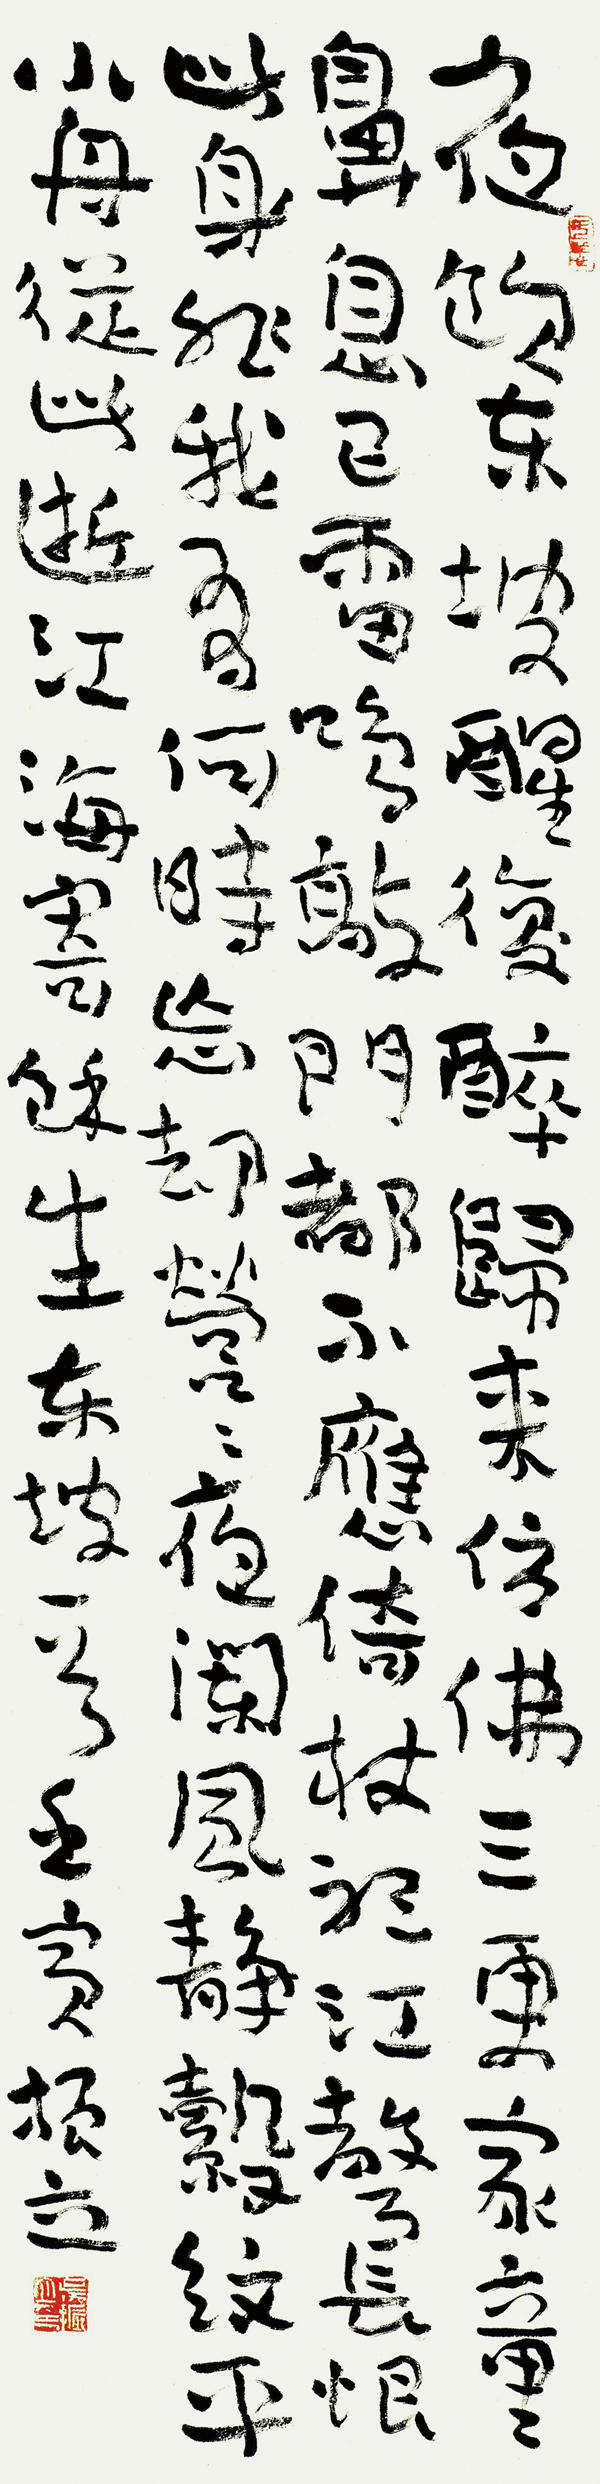 夜飲东坡醒復醉歸来仿佛三更家童
鼻息已雷鳴敲門都不應倚杖聽江聲長恨
此身非我有何時忘却營〻夜瀾風静縠紋平
小舟從此逝江海寄餘生东坡一首壬寅振立